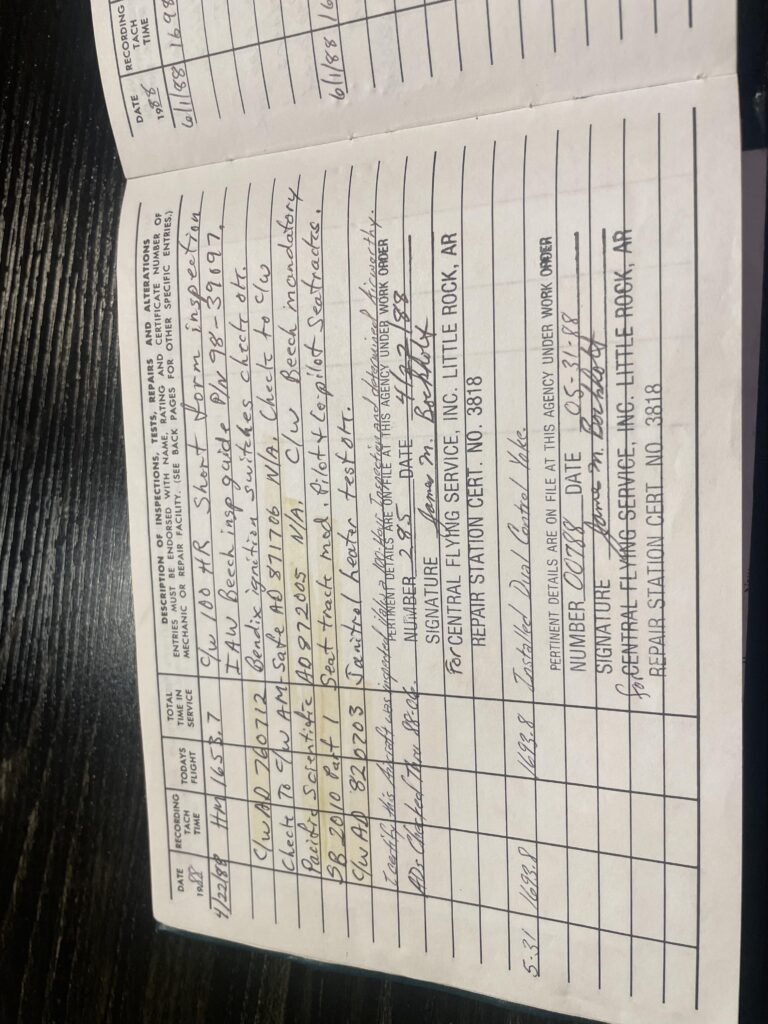 DATE
1988
RECORDING
TACH
TIME
TODAYS
FLIGHT
TOTAL
TIME IN
SERVICE
DESCRIPTION OF INSPECTIONS, TESTS, REPAIRS AND ALTERATIONS
ENTRIES MUST BE ENDORSED WITH NAME, RATING AND CERTIFICATE NUMBER OF
MECHANIC OR REPAIR FACILITY. (SEE BACK PAGES FOR OTHER SPECIFIC ENTRIES.)
4/22/88 HM 1653.7 C/W 100 HR Short form inspection
IAW Beech insp guide P/N 98-39097.
C/W AD 760712 Bendix ignition switches check ok.
Check To C/W AM-Safe AD 871706 N/A. Check to C/W
Pacific Scientific AD 872005 N/A. C/W Beech mandatory
SB 2010 Part 1 Seat track mod. Pilot & Co-pilot Seat racks.
C/W AD 820703 Janitrol heater test ok.
I certify this Aircraft was inspected Inspection and determined Airworthy.
PERTINENT DETAILS ARE ON FILE AT THIS AGENCY UNDER WORK ORDER
ADs Checked Thru 88-06.
NUMBER 285 DATE 4/22/88
SIGNATURE James M. Bochholt
For CENTRAL FLYING SERVICE, INC. LITTLE ROCK, AR
REPAIR STATION CERT. NO. 3818
5-31 1693.8 1693.8 Installed Dual Control Yoke.
PERTINENT DETAILS ARE ON FILE AT THIS AGENCY UNDER WORK ORDER
NUMBER 00788 DATE 05-31-88
SIGNATURE James M. Bochholt
for CENTRAL FLYING SERVICE, INC. LITTLE ROCK, AR
REPAIR STATION CERT. NO. 3818
DATE
1988
RECORDING
TACH
TIME
6/1/88 1698
6/1/88 16